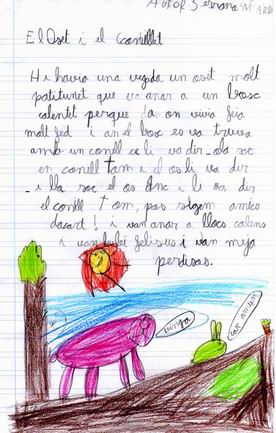 Autor Serrana M
El Oset i el Conillet
Hi havia una vegada un oset molt
patitunet que va anar a un bosc
calentet perque la on vivia feia
molt fed i an el bosc es va truva
amb un conill ce li va dir ola soc
en conill tom i el os li va dir
i lla soc el os dnc i li va dir
el conill tom, pas sigem amics
dacort! i van anar a llocs calens
i van felisus i van mija
perdisas.
vinga